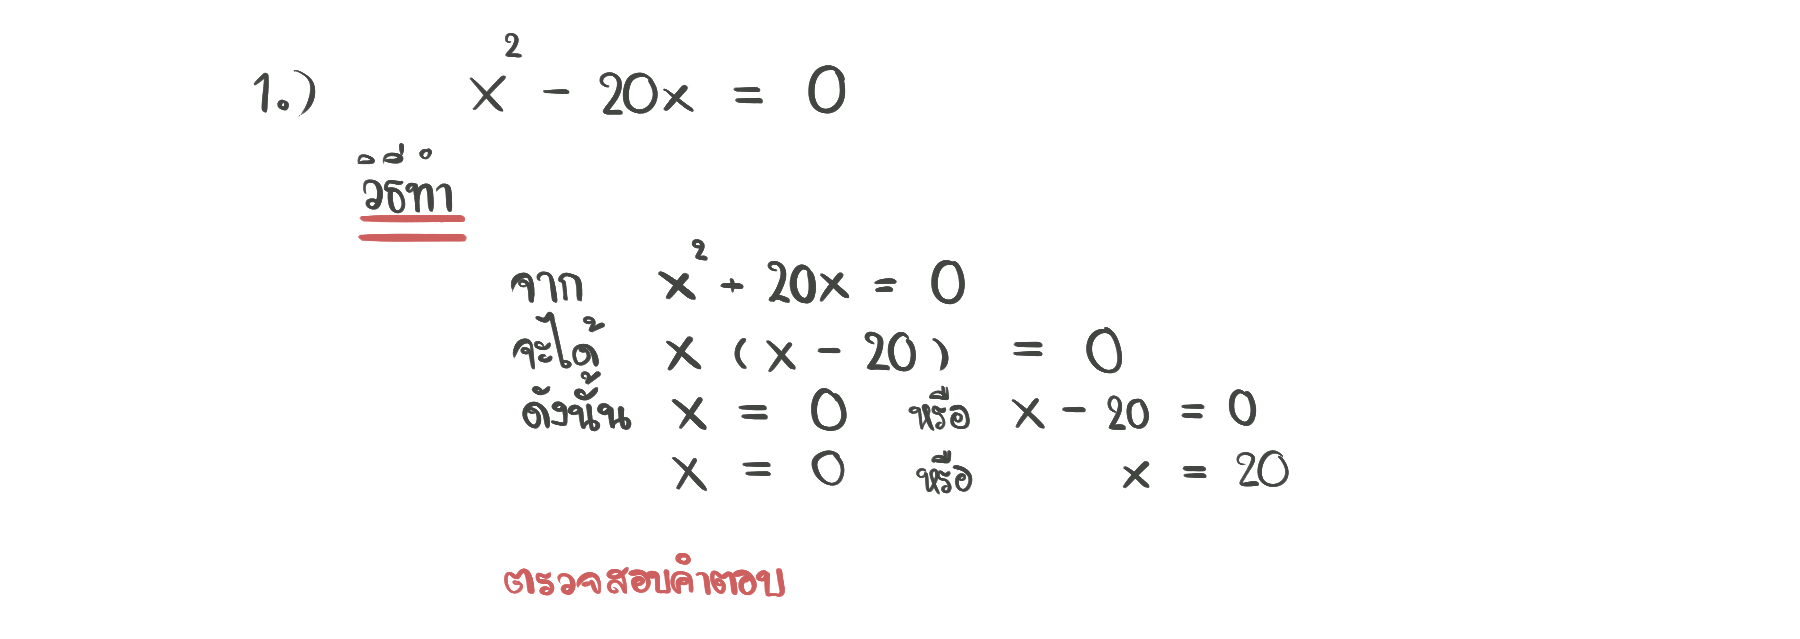 1.) x² - 20x = 0
วิธีทำ
จาก x² + 20x = 0
จะได้ x (x - 20) = 0
ดังนั้น x = 0 หรือ x - 20 = 0
x = 0 หรือ x = 20
ตรวจสอบคำตอบ